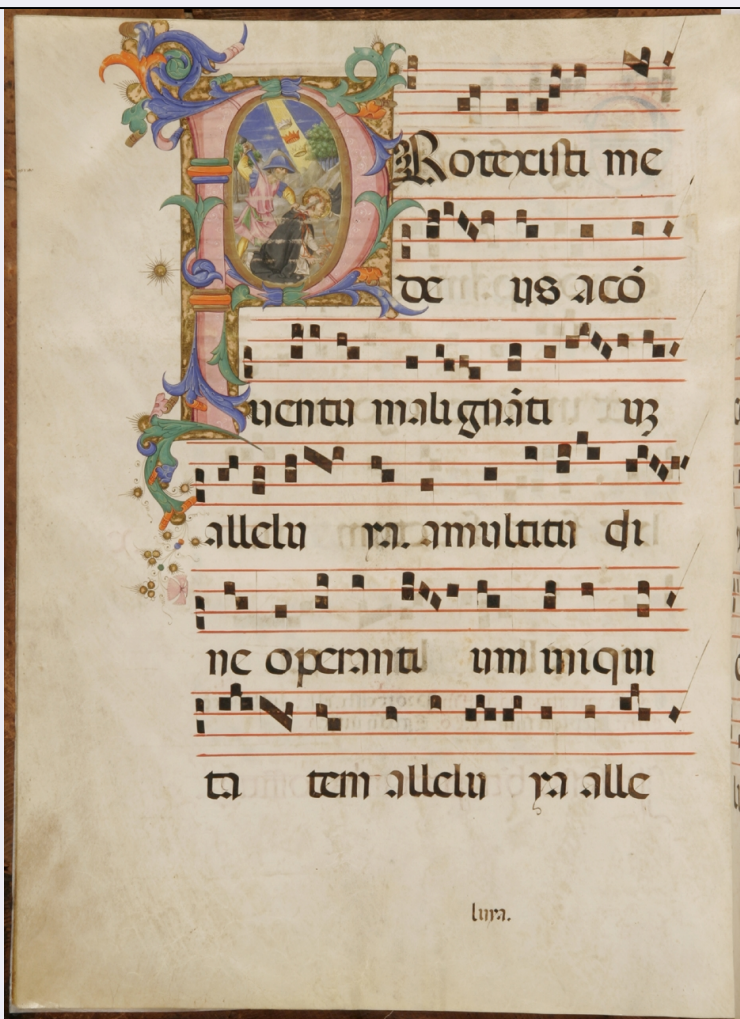 PRotexisti me
de us a cō
uentu malignāti uz
allelu ya. a multitu di
ne operanti um iniqui
ta tem allelu ya alle
luya.